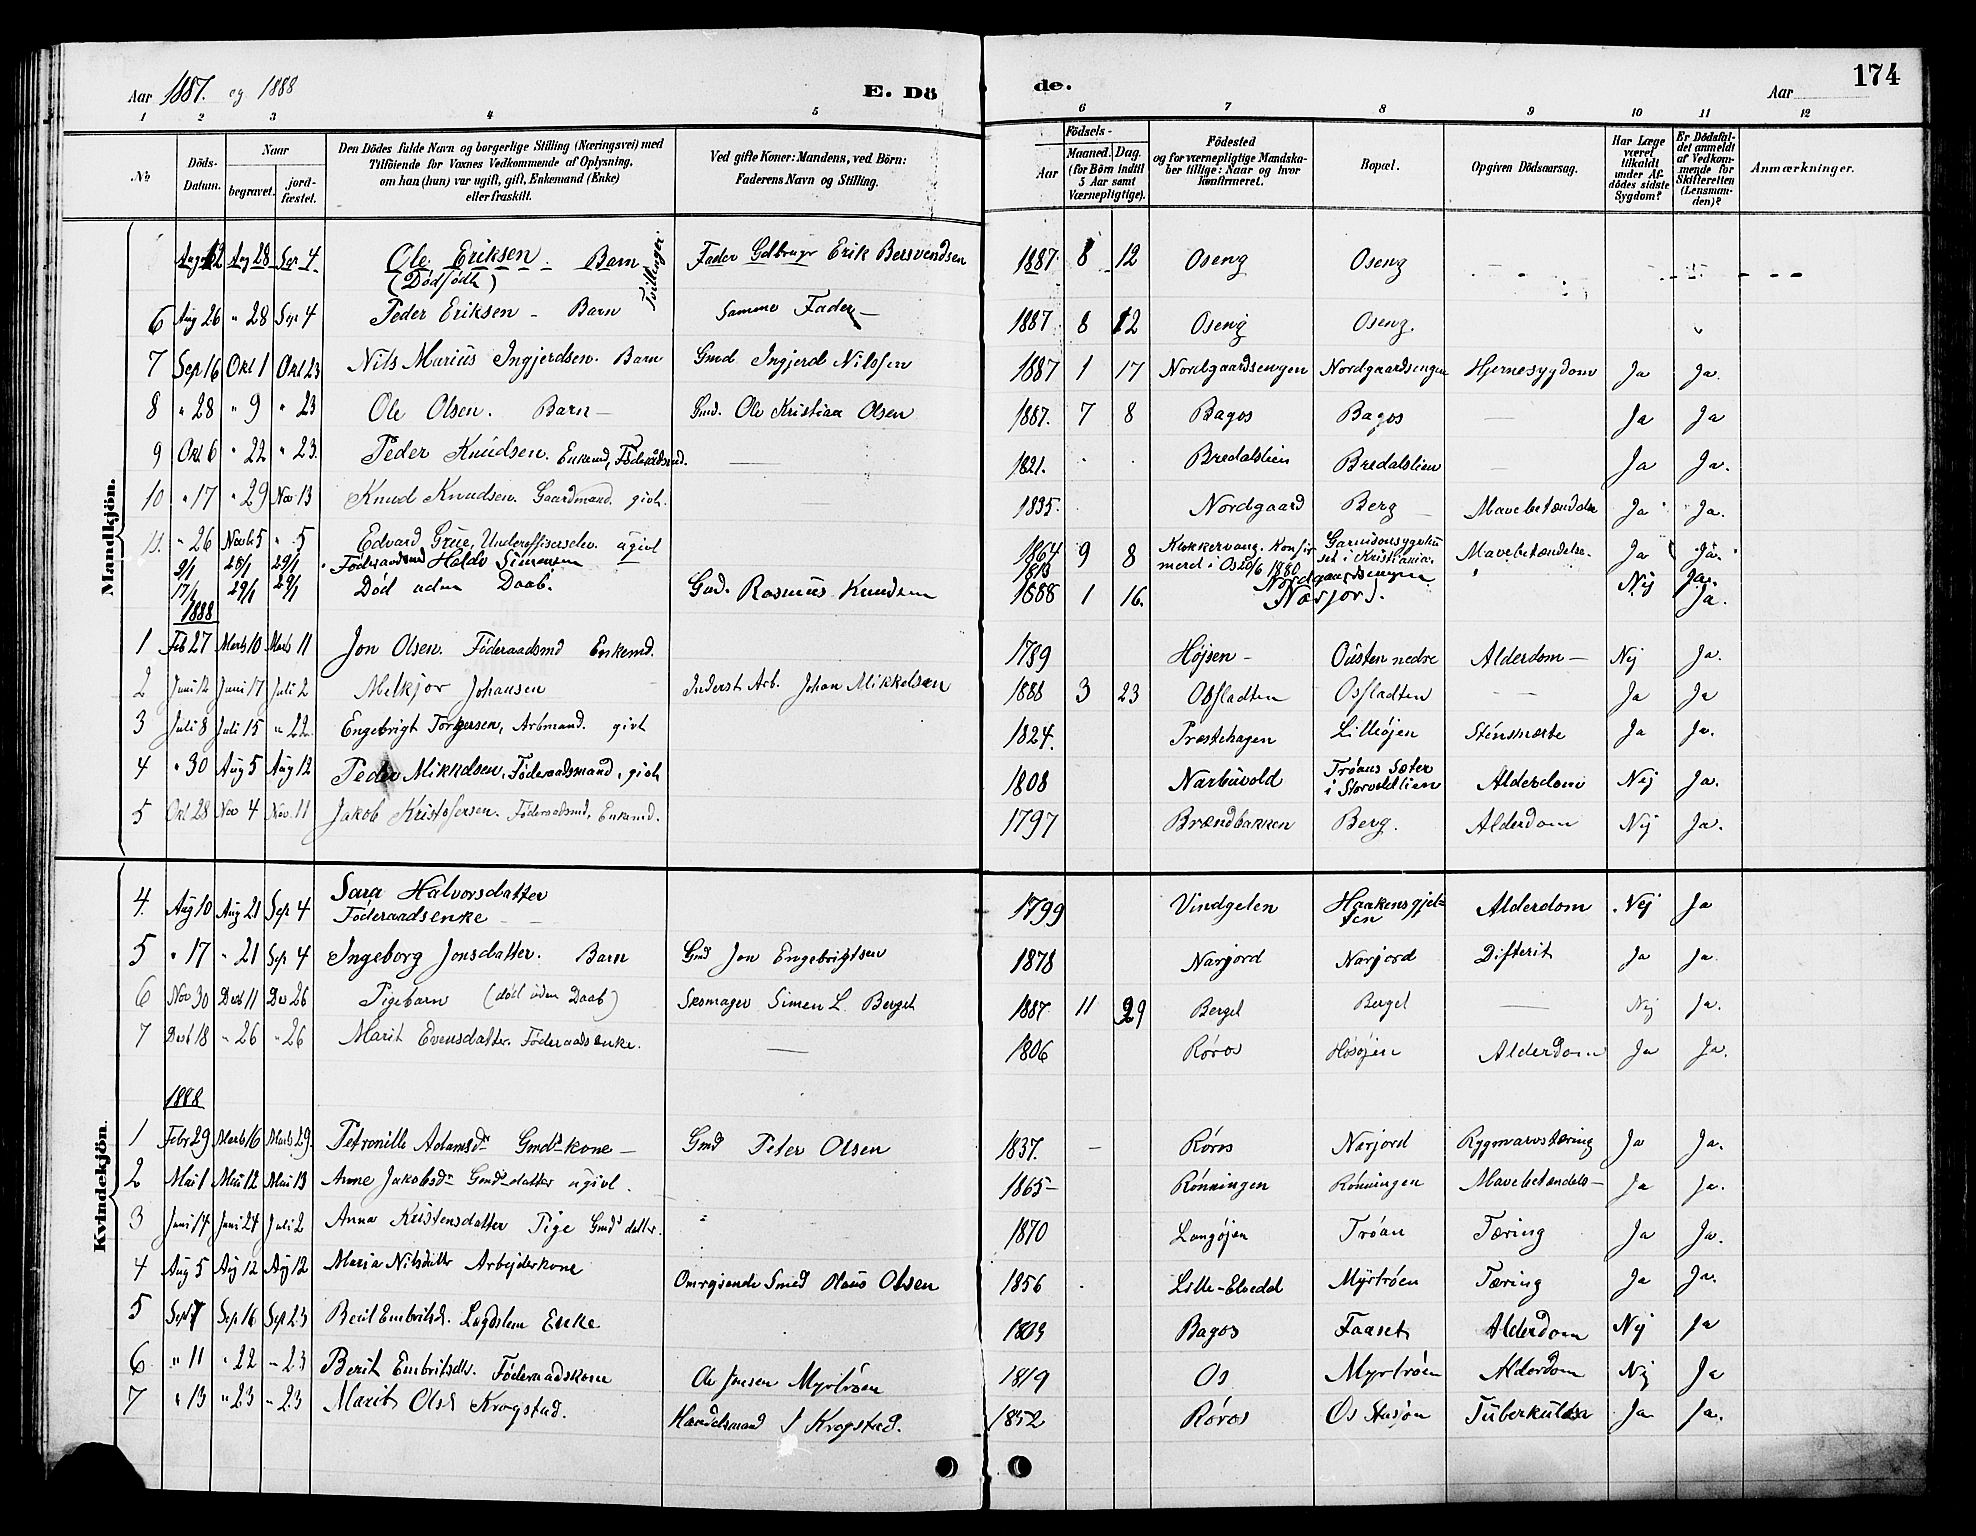 174
Aar 1887. og 1888 E. Dö de. Aar
1 2 3 4 5 6 7 8 9 10 11 12
No. Döds-Datum. Naar begravet. jordfæstet. Den Dödes fulde Navn og borgerlige Stilling (Næringsvei) med Tilföiende for Voxnes Vedkommende af Oplysning, om han (hun) var ugift, gift, Enkemand (Enke) eller fraskilt. Ved gifte Koner: Mandens, ved Börn: Faderens Navn og Stilling. Aar Födsels- Maaned. Dag. (for Börn indtil 5 Aar samt Værnepligtige). Födested og for værnepligtige Mandskaber tillige: Naar og hvor konfirmeret. Bopæl. Opgiven Dödsaarsag. Har Læge været tilkaldt under Afdödes sidste Sygdom? Er Dödsfaldet anmeldt af Vedkommende for Skifteretten (Lensmanden)? Anmærkninger.
Mandkjön.
Aug 12 Aug 28 Sep 4 Ole Eriksen. Barn Fader Gdbruger Erik Bersvendsen 1887. 8 12 Oseng Oseng
(Dødfødt) Tvillinger.
6 Aug 26 " 28 Sep 4 Peder Eriksen - Barn Samme Fader - 1887 8 12 Oseng Oseng. "
7 Sep 16 Okt 1 Okt 23 Nils Marius Ingjerdsen. Barn Gmd Ingjerd Nilssen 1887 1 17 Nordgaardsengen Nordgaardsengen Hjernesygdom Ja Ja.
8 " 28 " 9 " 23 Ole Olsen. Barn - Gmd. Ole Kristian Olsen 1887. 7 8 Bagos Bagos — Ja Ja
9 Okt 6 " 22 " 23. Peder Knudsen. Enkemd, Föderaadsmd. — 1821. Bredalslien Bredalslien — Ja Ja.
10 " 17 " 29 Nov 13 Knud Knudsen. Gaardmand. givt. 1835. Nordgaard Berg Mavebetændelse Ja Ja.
11. " 26 Novb 5 " 5 Edvard Grue, Underoffiserselev. ugivt 1864 9 8 Klokkervang. Konfirmeret i Os 20/6 1880 Garnisonssygehuset i Kristiania. Mavebetændelse. Ja Ja.
9/1 28/1 29/1 Föderaadsmd Haldo Simensen 1813 Nordgaardsengen Nej Ja.
17/1 29/1 29/1 Död uden Daab. Gmd. Rasmus Knudsen 1888 1 16. Narjord. Ja.
1888
1 Feb 27 Marts 10 Marts 11 Jon Olsen. Föderaadsmd Enkemd. 1789 Højsen - Ousten nedre Alderdom - Nej Ja.
2 Juni 12 Juni 17 Juli 2 Melkjor Johansen Inderst Arb. Johan Mikkelsen 1888 3 23 Osfladten Osfladten — Ja Ja
3 Juli 8 Juli 15 " 22. Engebrigt Torgersen, Arbmand. givt 1824. Præstehagen Lilleöjen Stensmerte Ja Ja.
4 " 30 Aug 5 Aug 12 Peder Mikkelsen, Föderaadsmand, givt 1808 Narbuvold Tröans Sæter i Storvoldlien Alderdom Nej Ja.
5 Okt 28 Nov 4 Nov. 11 Jakob Kristofersen. Föderaadsmd, Enkemd. 1797 Brændbakken Berg. Alderdom Nej Ja.
Kvindekjön.
4. Aug 10 Aug 21 Sep 4 Sara Halvorsdatter Föderaadsenke 1799 Vindgelen Haakensgjelten Alderdom Nej Ja
5 " 17 " 21 Sep 4 Ingeborg Jonsdatter. Barn Gmd Jon Engebrigtsen 1878 Narjord Narjord Difterit Ja Ja
6 Nov 30 Decb 11 De 26 Pigebarn (död uden Daab) Skomager Simen L. Berget 1887. 11 29 Berget Berget — Nej Ja.
7 Decb 18 " 26 " 26 Marit Evensdatter. Föderaadsenke. — 1806 Røros Hösöjen Alderdom Ja Ja.
1888
1 Febr 29 Marts 16 Marts 29. Petronille Adamsdr Gmds kone - Gmd Peter Olsen 1837. - Røros Narjord Rygmarvstæring Ja Ja.
2 Mai 1 Mai 12 Mai 13 Anne Jakobsdr Gmds datter ugivt. 1865 - Rönningen Rönningen Mavebetændels - Ja Ja.
3 Juni 14 Juni 24 Juli 2 Anna Kristensdatter Pige Gmds datter. " 1870 Langöjen Tröan Tæring Ja Ja.
4 Aug 5 Aug 12 Aug 12 Maria Nilsdatter Arbejderkone Omrejsende Smed Olaus Olsen 1856 Lille-Elvedal Myrtröen Tæring Ja Ja.
5 Sept 7 Sep 16 Sep 23 Berit Embritsdr. Lægdslem Enke 1803 Bagos Faaset Alderdom Nej Ja
6. " 11 " 22 " 23 Berit Embritsdtr. Föderaadskone Ole Jonsen Myrtröen 1819 Os Myrtröen Alderdom Nej Ja
7 " 13 " 23 " 23 Marit Olsd Krogstad. Handelsmand J Krogstad. 1852 Røros Os Stasjon Tuberkulose Ja Ja.